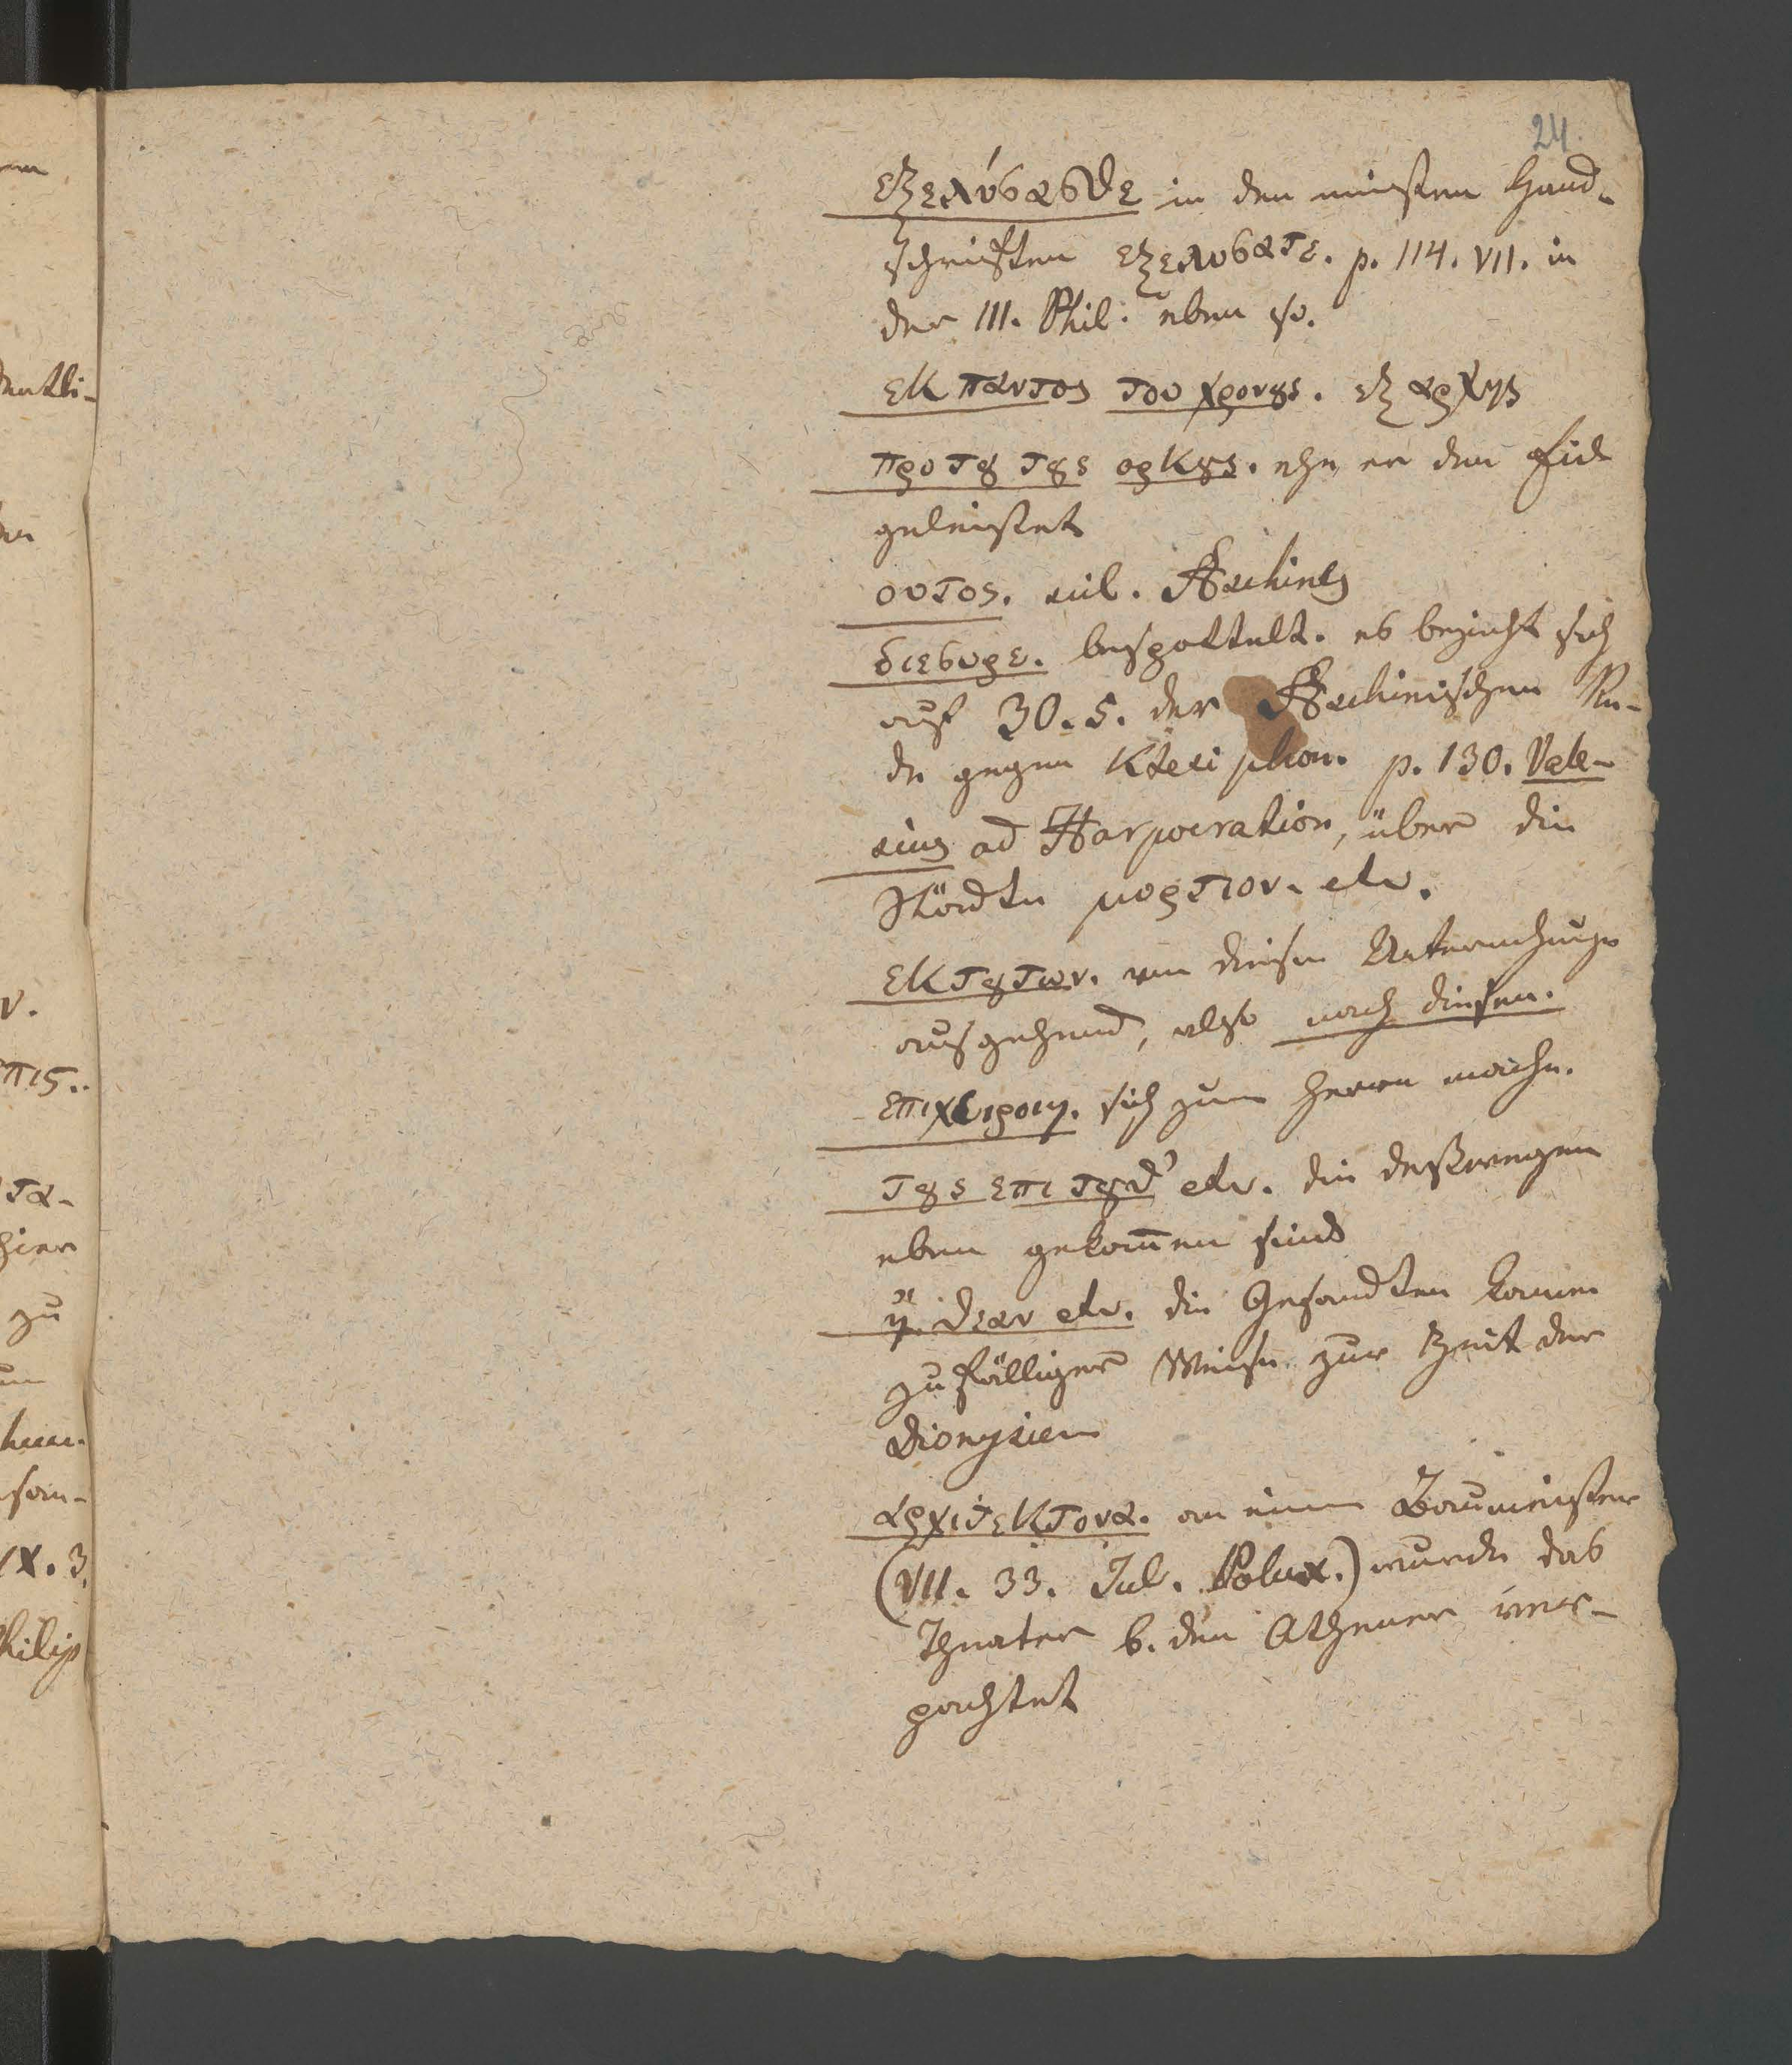 24.
εξελύσασθε in den meisten Hand-
schriften εξελυσατε. p. 114. VII. in
der III. Phil. eben so.
εκ παντος του χρονȣς. εξ αρχης
προ τȣ τȣς ορκȣς. ehe er den Eid
geleistet
ουτος. scil. Æschines
διεσυρε. bespöttelt. es bezieht sich
auf 30.5. der Æschinischen Re-
de gegen Ktesiphon. p. 130. Vale-
sius ad Harpocration, über die
Städte μυρτιον. etc.
εκ τȣτων. von diesen Unterredungen
ausgehend, also nach diesen.
επιχειροιη. sich zum Herrn mache.
τȣς επι τȣθ' etc. die deßwegen
eben gekom̄en sind
η̈ θεαν etc. die Gesandten kamen
zufälliger Weise zur Zeit der
Dionysien
αρχιτεκτονα. an einen Baumeister
(VII. 33. Jul. Polux.) wurde das
Theater b. den Athener ver-
pachtet